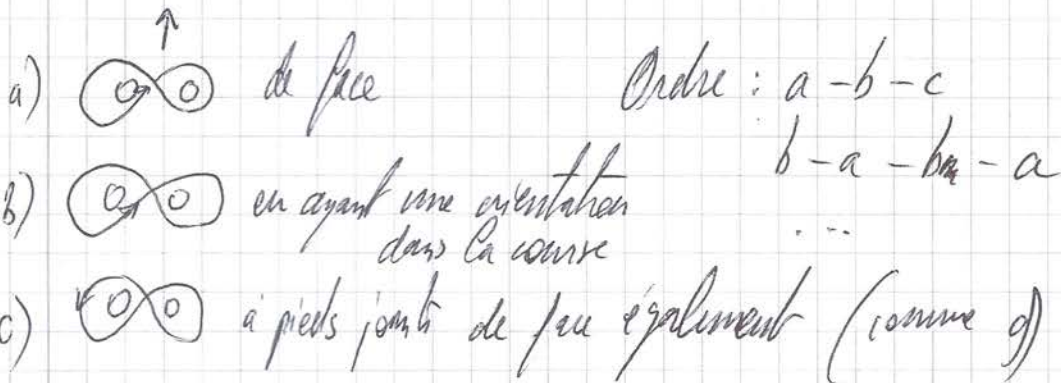 a) de face
Ordre : a - b - c
b - a - b - a
...
b) en ayant une orientation
dans la course
c) à pieds joints de face également (comme a)